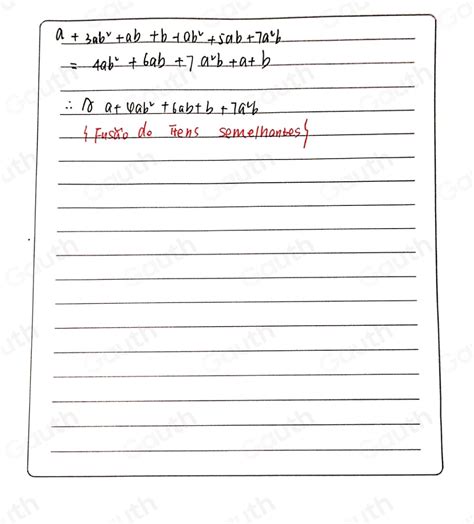 a + 3ab² + ab + b + ab² + 5ab + 7a²b
= 4ab² + 6ab + 7a²b + a + b
∴ a + 4ab² + 6ab + b + 7a²b
{Fusão de itens semelhantes}
Gauth